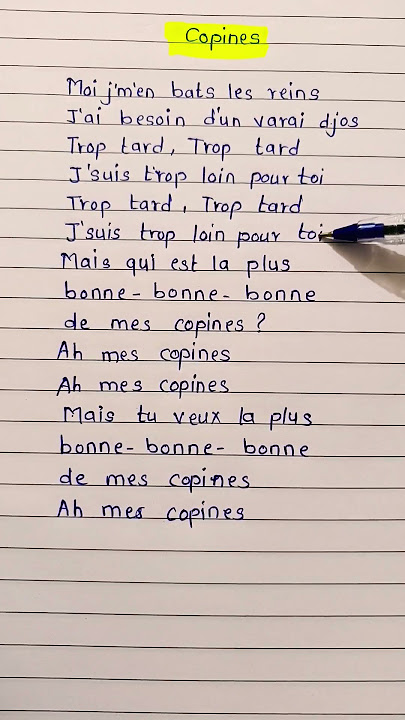 Copines
Moi j'm'en bats les reins
J'ai besoin d'un varai djos
Trop tard, Trop tard
J'suis trop loin pour toi
Trop tard, Trop tard
J'suis trop loin pour toi
Mais qui est la plus
bonne-bonne-bonne
de mes copines ?
Ah mes copines
Ah mes copines
Mais tu veux la plus
bonne-bonne-bonne
de mes copines
Ah mes copines